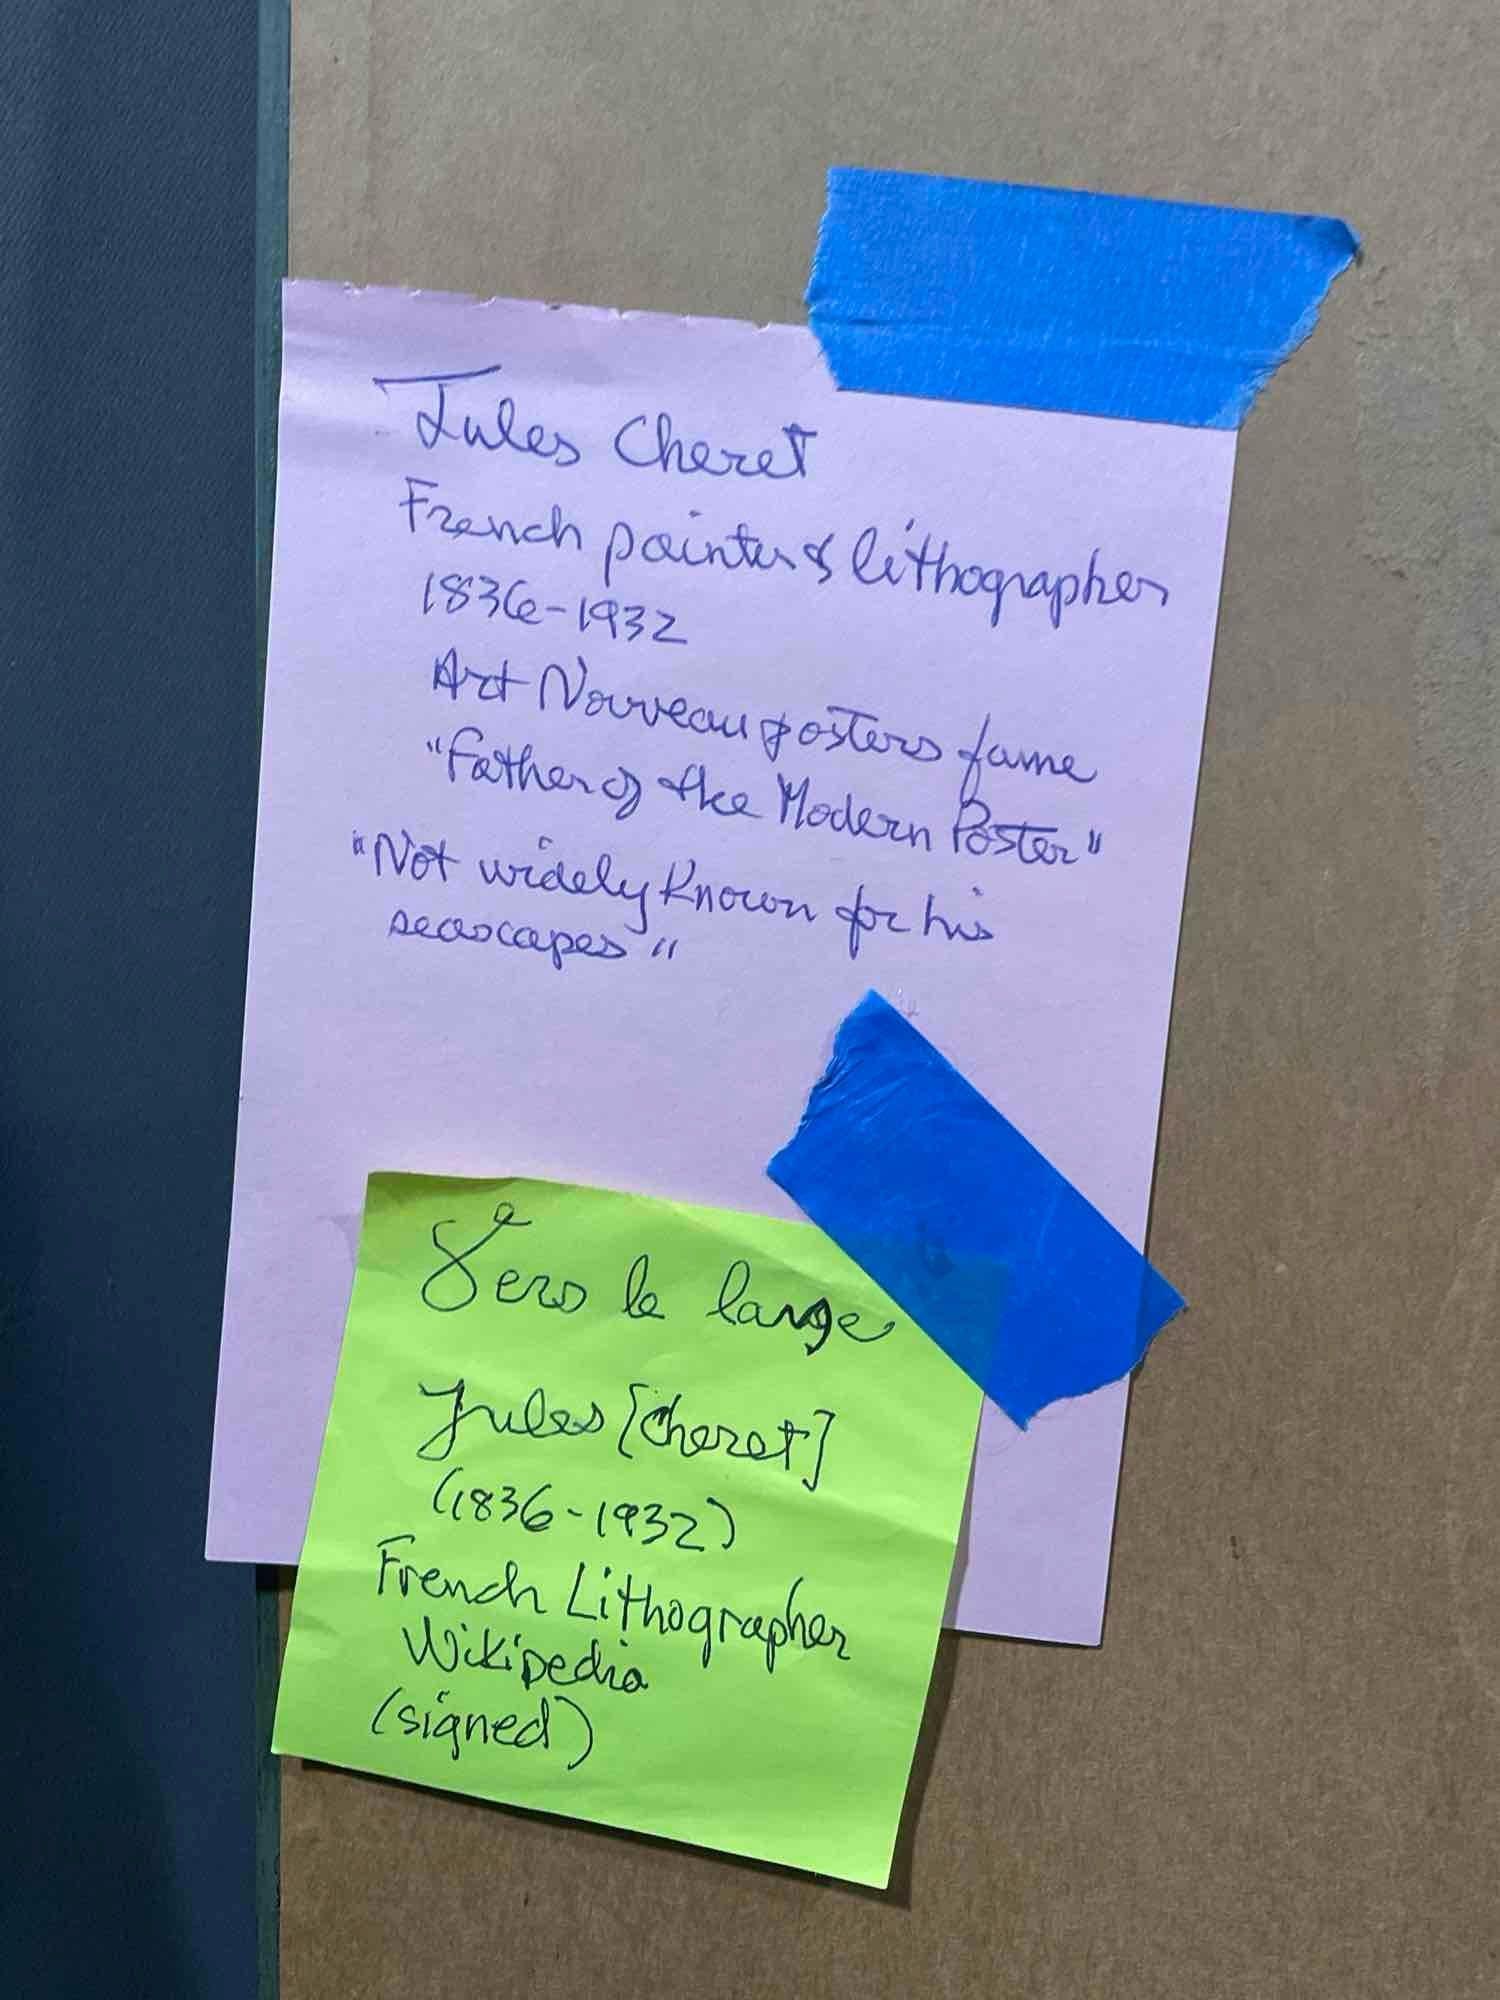 Jules Cheret
French painter & lithographer
1836-1932
Art Nouveau posters fame
"Father of the Modern Poster"
"Not widely known for his
seascapes"
Vers le large
Jules [Cheret]
(1836-1932)
French Lithographer
Wikipedia
(signed)